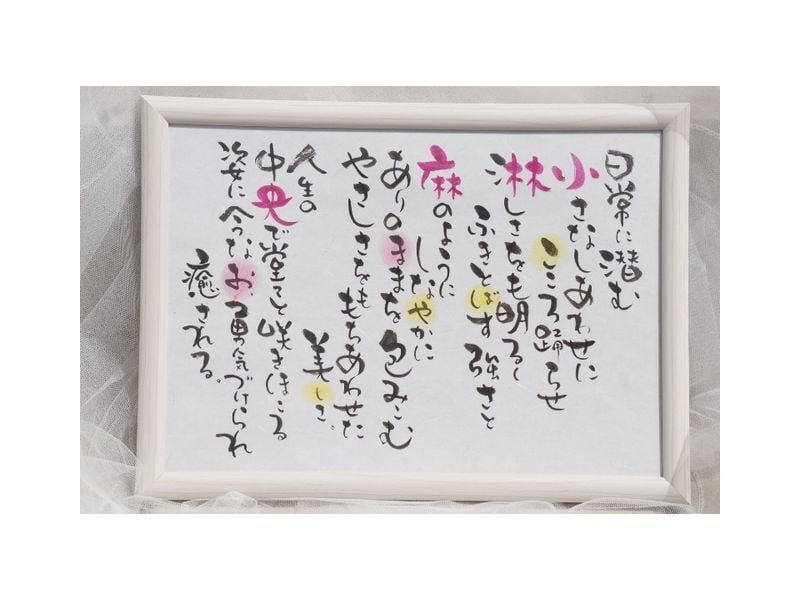 日常に潜む
小さなしあわせに
こころ踊らせ
淋しさをも明るく
ふきとばす強さと
麻のように
しなやかに
ありのままを包みこむ
やさしさをももちあわせた
美しさ。
人生の
中央で堂々と咲きほこる
姿に今なお、勇気づけられ
癒される。